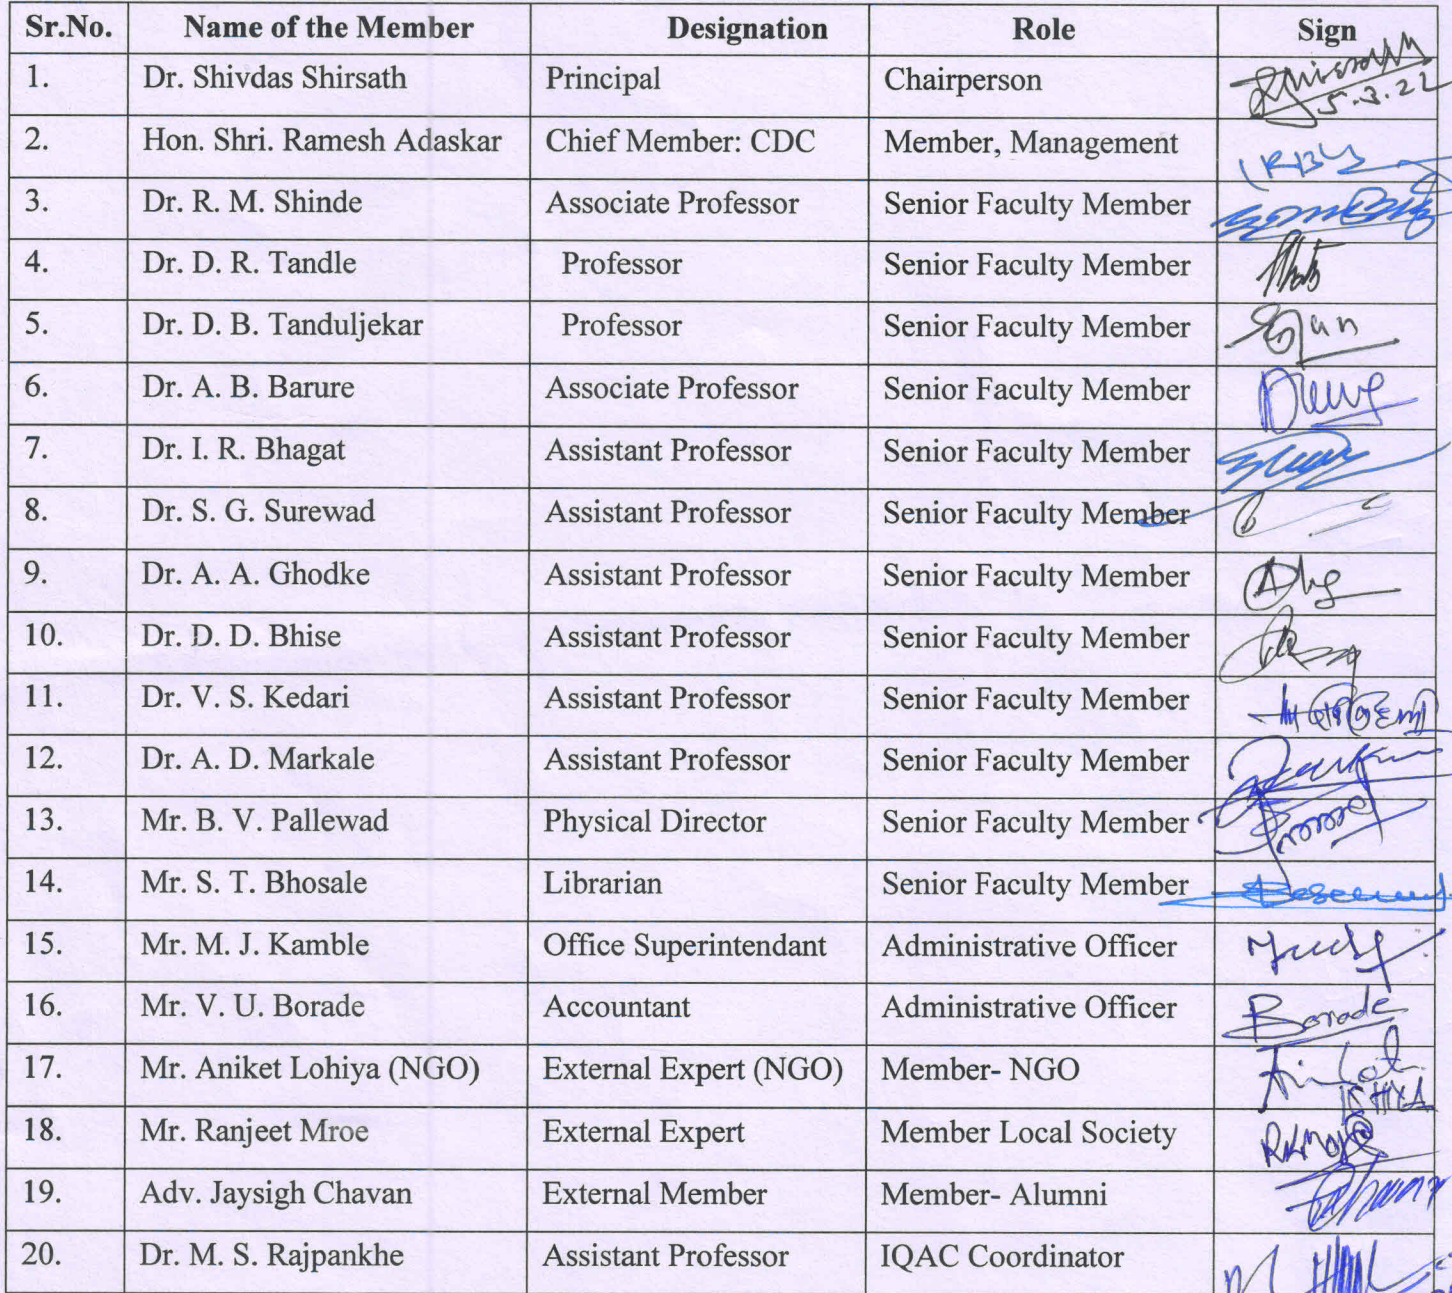 Sr.No. Name of the Member Designation Role Sign
1. Dr. Shivdas Shirsath Principal Chairperson
5.3.22
2. Hon. Shri. Ramesh Adaskar Chief Member: CDC Member, Management
3. Dr. R. M. Shinde Associate Professor Senior Faculty Member
4. Dr. D. R. Tandle Professor Senior Faculty Member
5. Dr. D. B. Tanduljekar Professor Senior Faculty Member
6. Dr. A. B. Barure Associate Professor Senior Faculty Member
7. Dr. I. R. Bhagat Assistant Professor Senior Faculty Member
8. Dr. S. G. Surewad Assistant Professor Senior Faculty Member
9. Dr. A. A. Ghodke Assistant Professor Senior Faculty Member
10. Dr. D. D. Bhise Assistant Professor Senior Faculty Member
11. Dr. V. S. Kedari Assistant Professor Senior Faculty Member
12. Dr. A. D. Markale Assistant Professor Senior Faculty Member
13. Mr. B. V. Pallewad Physical Director Senior Faculty Member
14. Mr. S. T. Bhosale Librarian Senior Faculty Member
15. Mr. M. J. Kamble Office Superintendant Administrative Officer
16. Mr. V. U. Borade Accountant Administrative Officer Borade
17. Mr. Aniket Lohiya (NGO) External Expert (NGO) Member- NGO
18. Mr. Ranjeet Mroe External Expert Member Local Society
19. Adv. Jaysigh Chavan External Member Member- Alumni
20. Dr. M. S. Rajpankhe Assistant Professor IQAC Coordinator